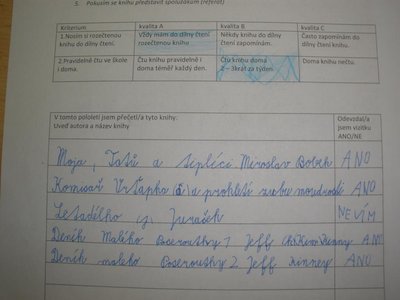 5. Pokusím se knihu představit spolužákům (referát)
Kriterium kvalita A kvalita B kvalita C
1.Nosím si rozečtenou knihu do dílny čtení. Vždy mám do dílny čtení rozečtenou knihu Někdy knihu do dílny čtení zapomínám. Často zapomínám do dílny čtení knihu.
2.Pravidelně čtu ve škole i doma. Čtu knihu pravidelně i doma téměř každý den. Čtu knihu doma 2 – 3krát za týden. Doma knihu nečtu.
V tomto pololetí jsem přečetl/a tyto knihy: Odevzdal/a
Uveď autora a název knihy jsem vizitku
ANO/NE
Moja, Taťů a teplíci Miroslav Bobek ANO
Komisař Vrťapka a prokletí zubu moudrosti ANO
Jureček NEVÍM
Deník Malého Poseroutky 1 Jeff Kinney ANO
Deník malého Poseroutky 2 Jeff Kinney ANO